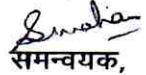 समन्वयक,